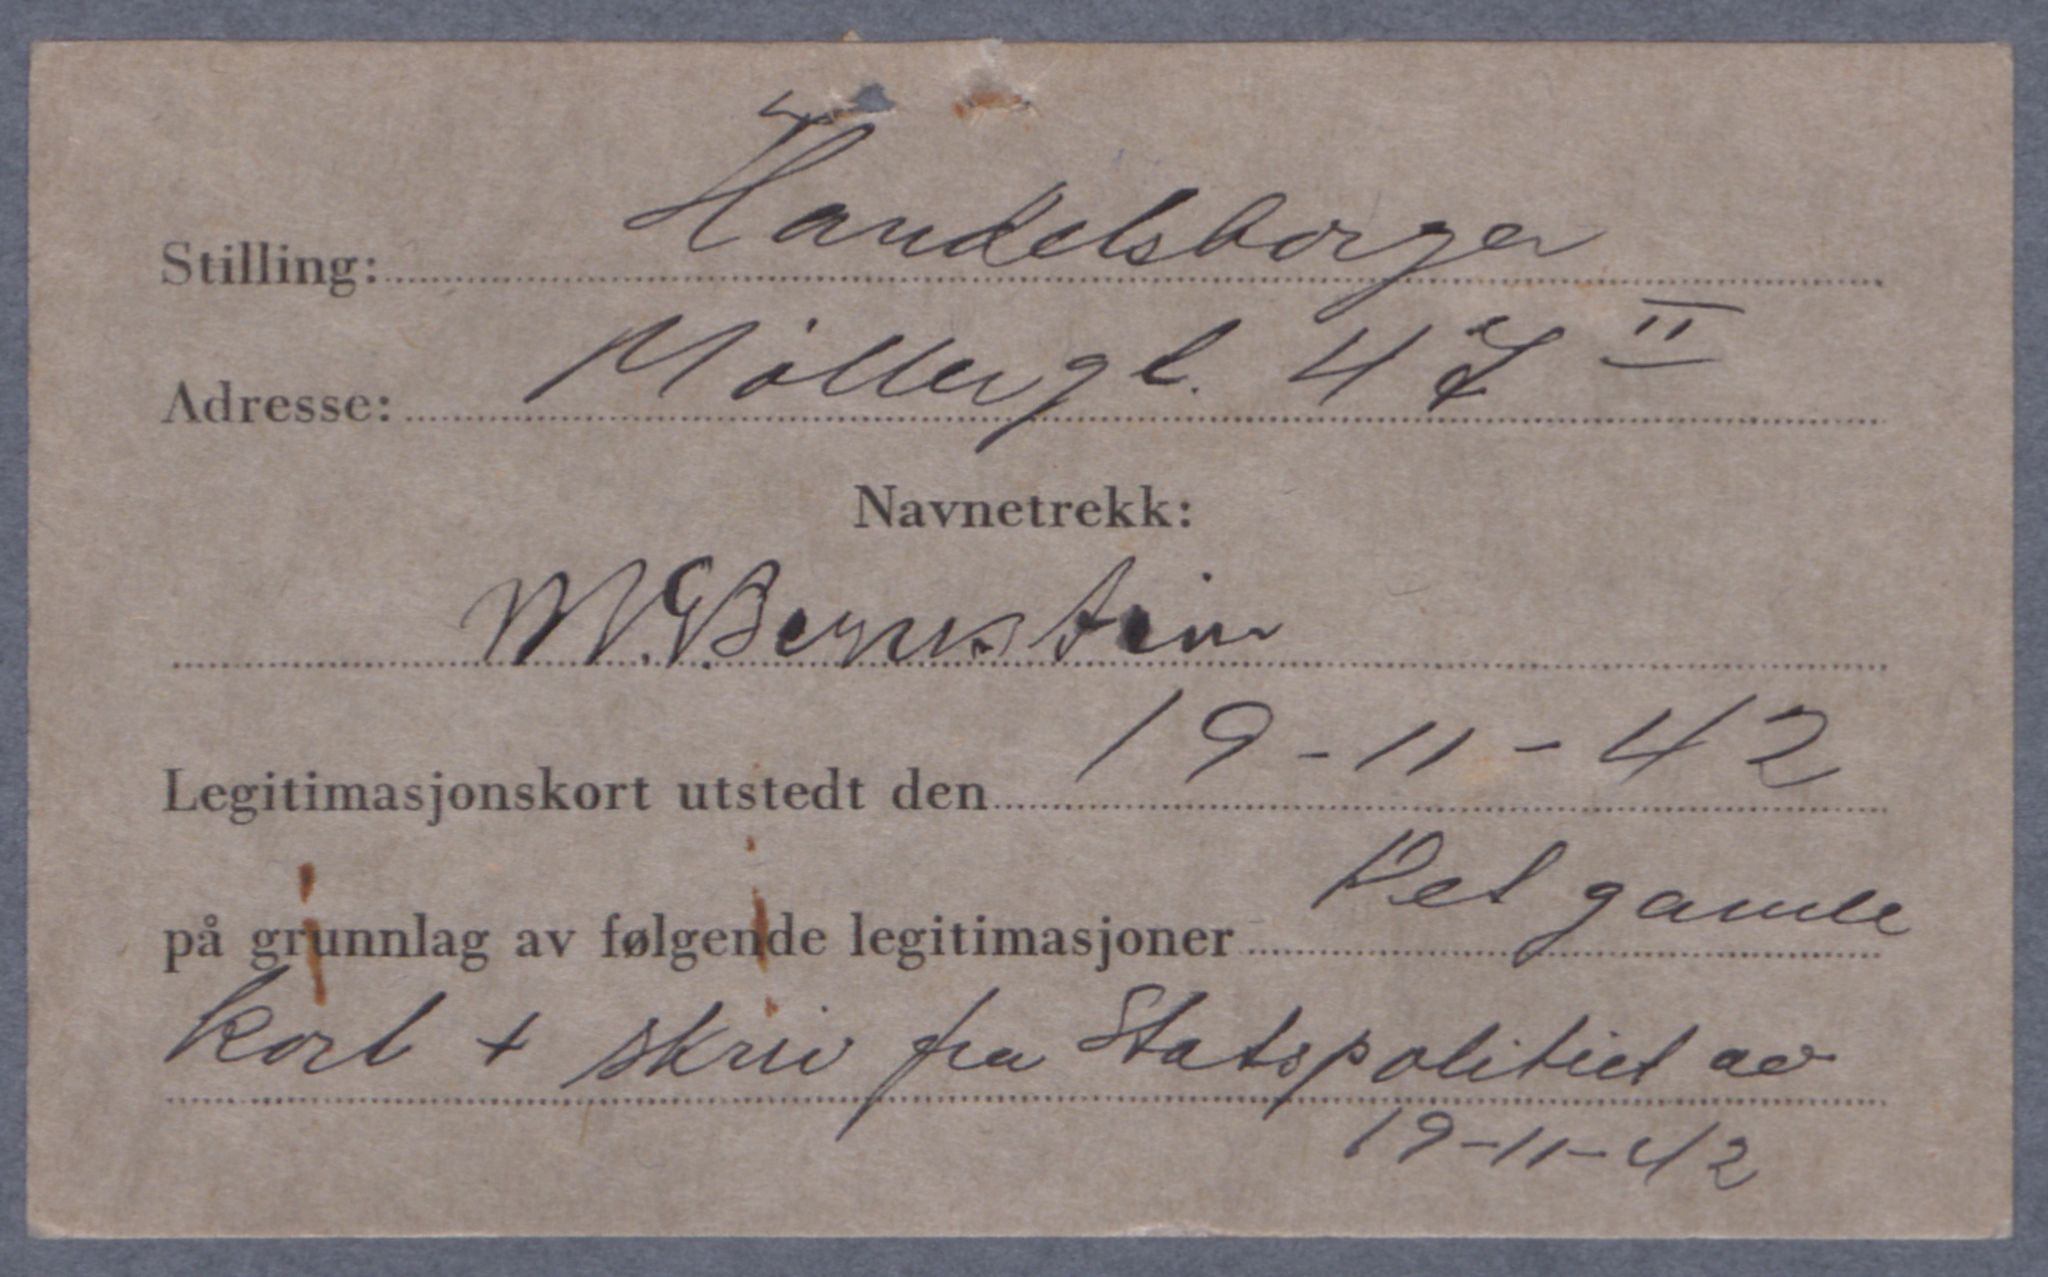 Stilling: Handelsborger
Adresse: Møllergt. 47 II
Navnetrekk:
M. E. Bernstein
Legitimasjonskort utstedt den 19-11-42
på grunnlag av følgende legitimasjoner Det gamle
kort + skriv fra Statspolitiet av
19-11-42